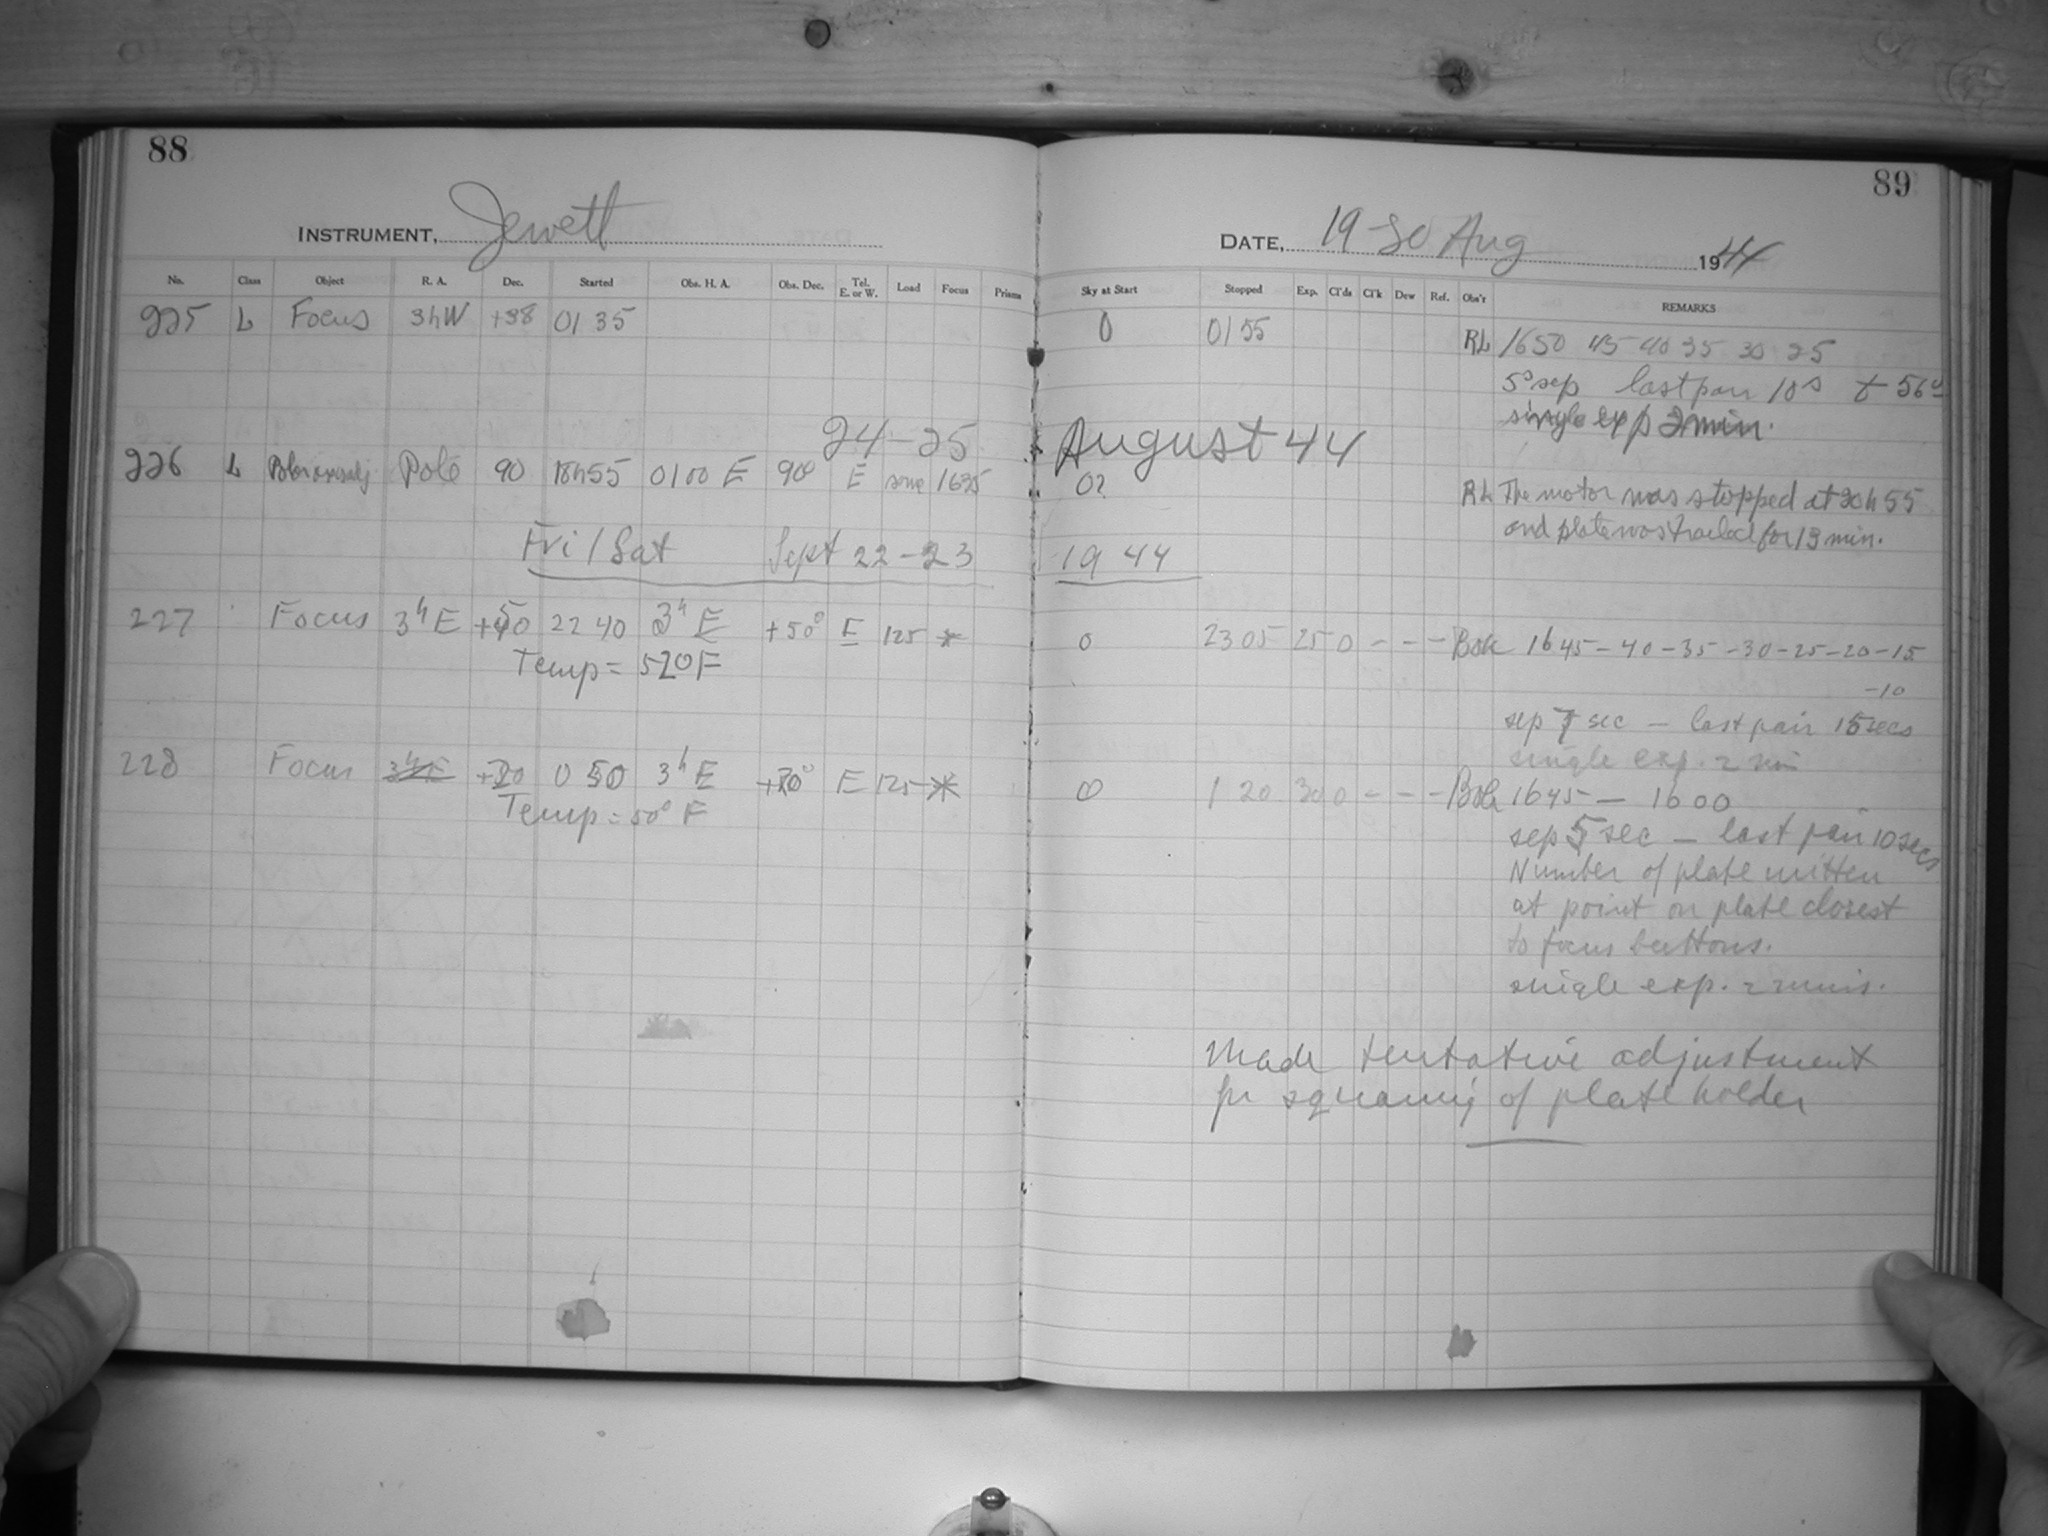 88
INSTRUMENT, Jewett
No. Class Object R. A. Dec. Started Obs. H. A. Obs. Dec. Tel. E. or W. Load Focus Prisms
225 L Focus 3hW +38 01 35
24-25
226 L Pole 90 18h55 0100 E 90° E same 1635
Fri / Sat Sept 22-23
227 Focus 3h E +50 22 40 3h E +50° E 125 *
Temp = 52°F
228 Focus 0 50 3h E E 125 *
Temp = 50° F
89
DATE, 19-20 Aug 1944
Sky at Start Stopped Exp. Cl'ds Cl'k Dew Ref. Obs'r REMARKS
0 01 55 RL 1650 45 40 35 30 25
5s sep last pair 10s t 56°
single exp 2 min.
August 44
0? RL The motor was stopped at 20h55
and plate was trailed for 13 min.
19 44
0 23 05 25 0 - - - Bok 1645-40-35-30-25-20-15
-10
sep 7 sec - last pair 15 secs
single exp. 2 min
0 1 20 30 0 - - - Bok 1645 - 1600
sep 5 sec - last pair 10 secs
Number of plate written
at point on plate closest
to focus buttons.
single exp. 2 mins.
Made tentative adjustment
for squaring of plate holder